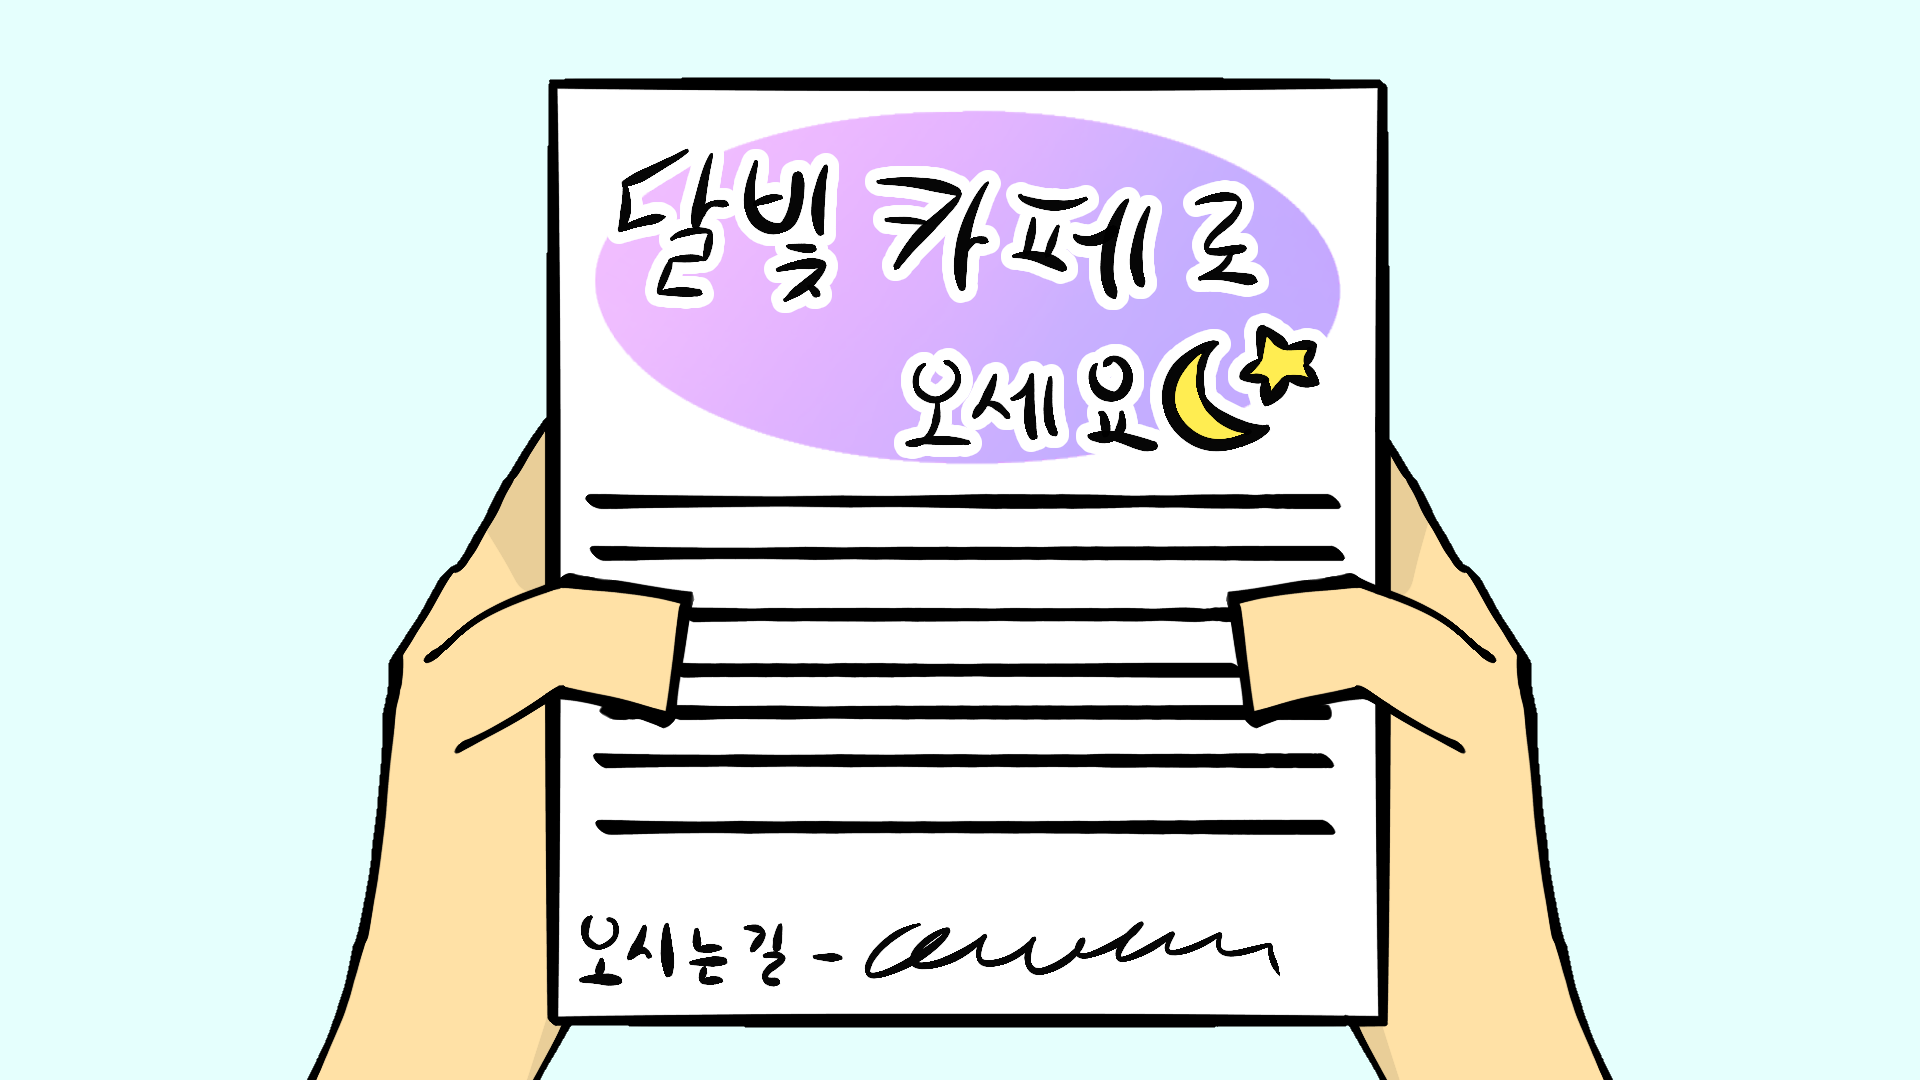 달빛 카페로
오세요
오시는길 -